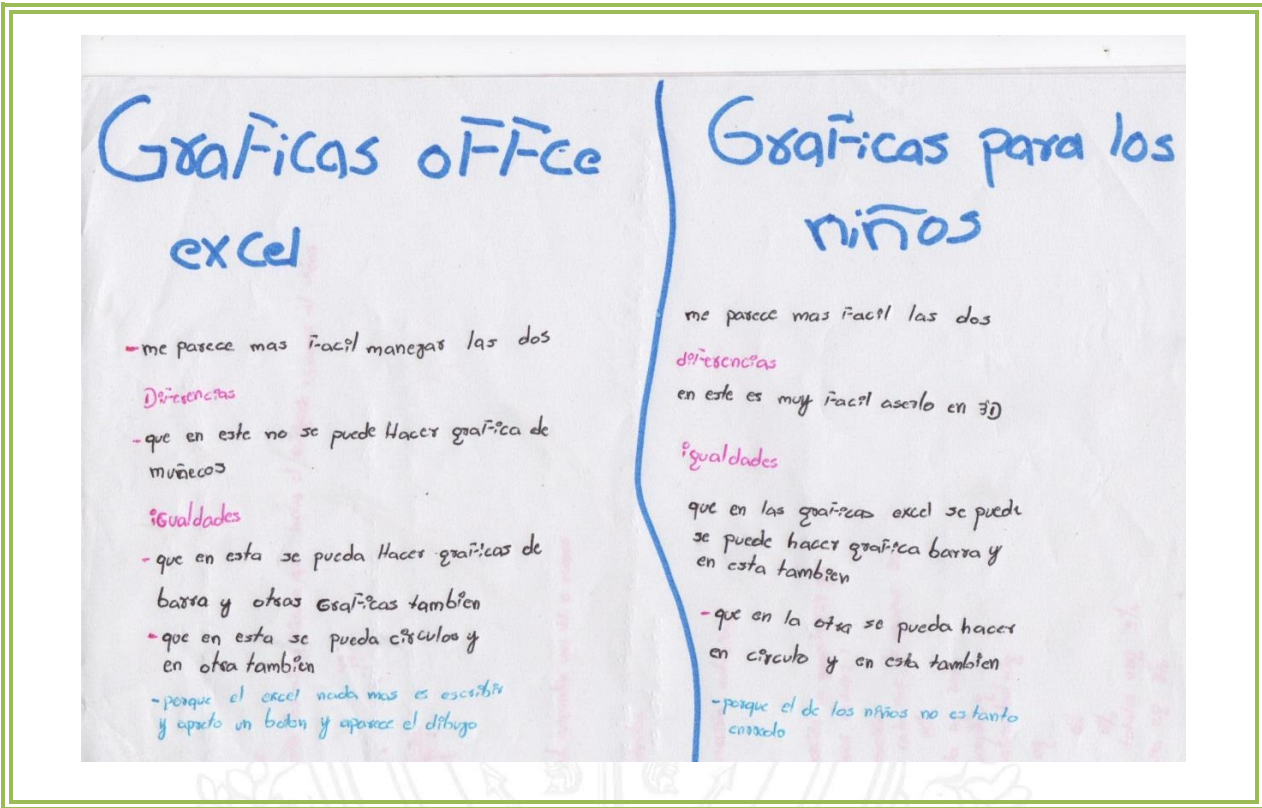 Graficas offce
excel
- me parece mas facil manegar las dos
Diferencias
- que en este no se puede Hacer grafica de
muñecos
igualdades
- que en esta se pueda Hacer graficas de
barra y otras Graficas tambien
- que en esta se pueda circulos y
en otra tambien
- porque el excel nada mas es escribir
y apreto un boton y aparece el dibugo
Graficas para los
niños
me parece mas facil las dos
diferencias
en este es muy facil aserlo en 3D
igualdades
que en las graficas excel se puede
se puede hacer grafica barra y
en esta tambien
- que en la otra se pueda hacer
en circulo y en esta tambien
- porque el de los niños no es tanto